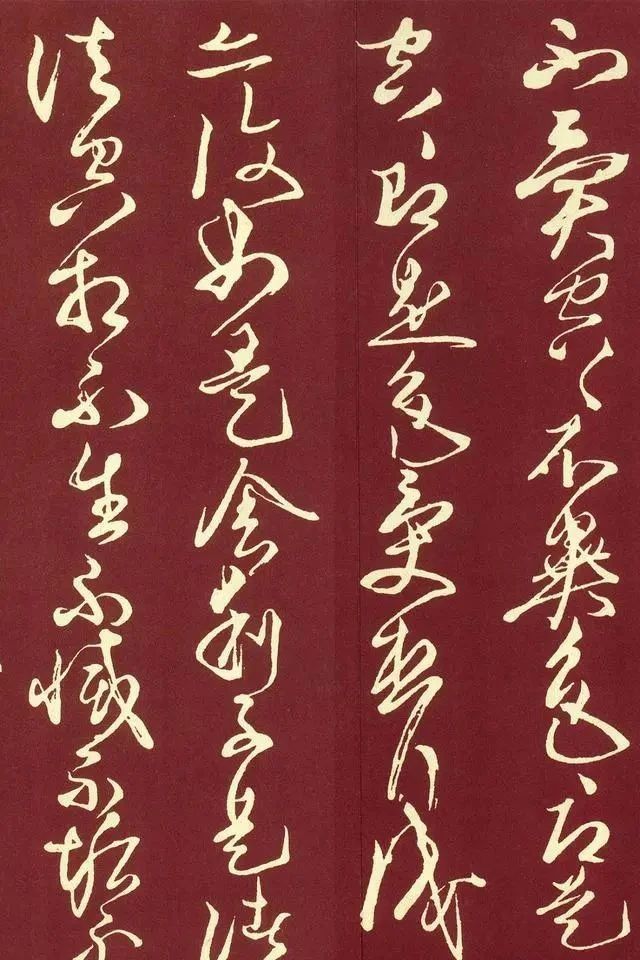 不異空々不異色々即是
空々即是色受想行識
亦復如是舍利子是諸
法空相不生不滅不垢不